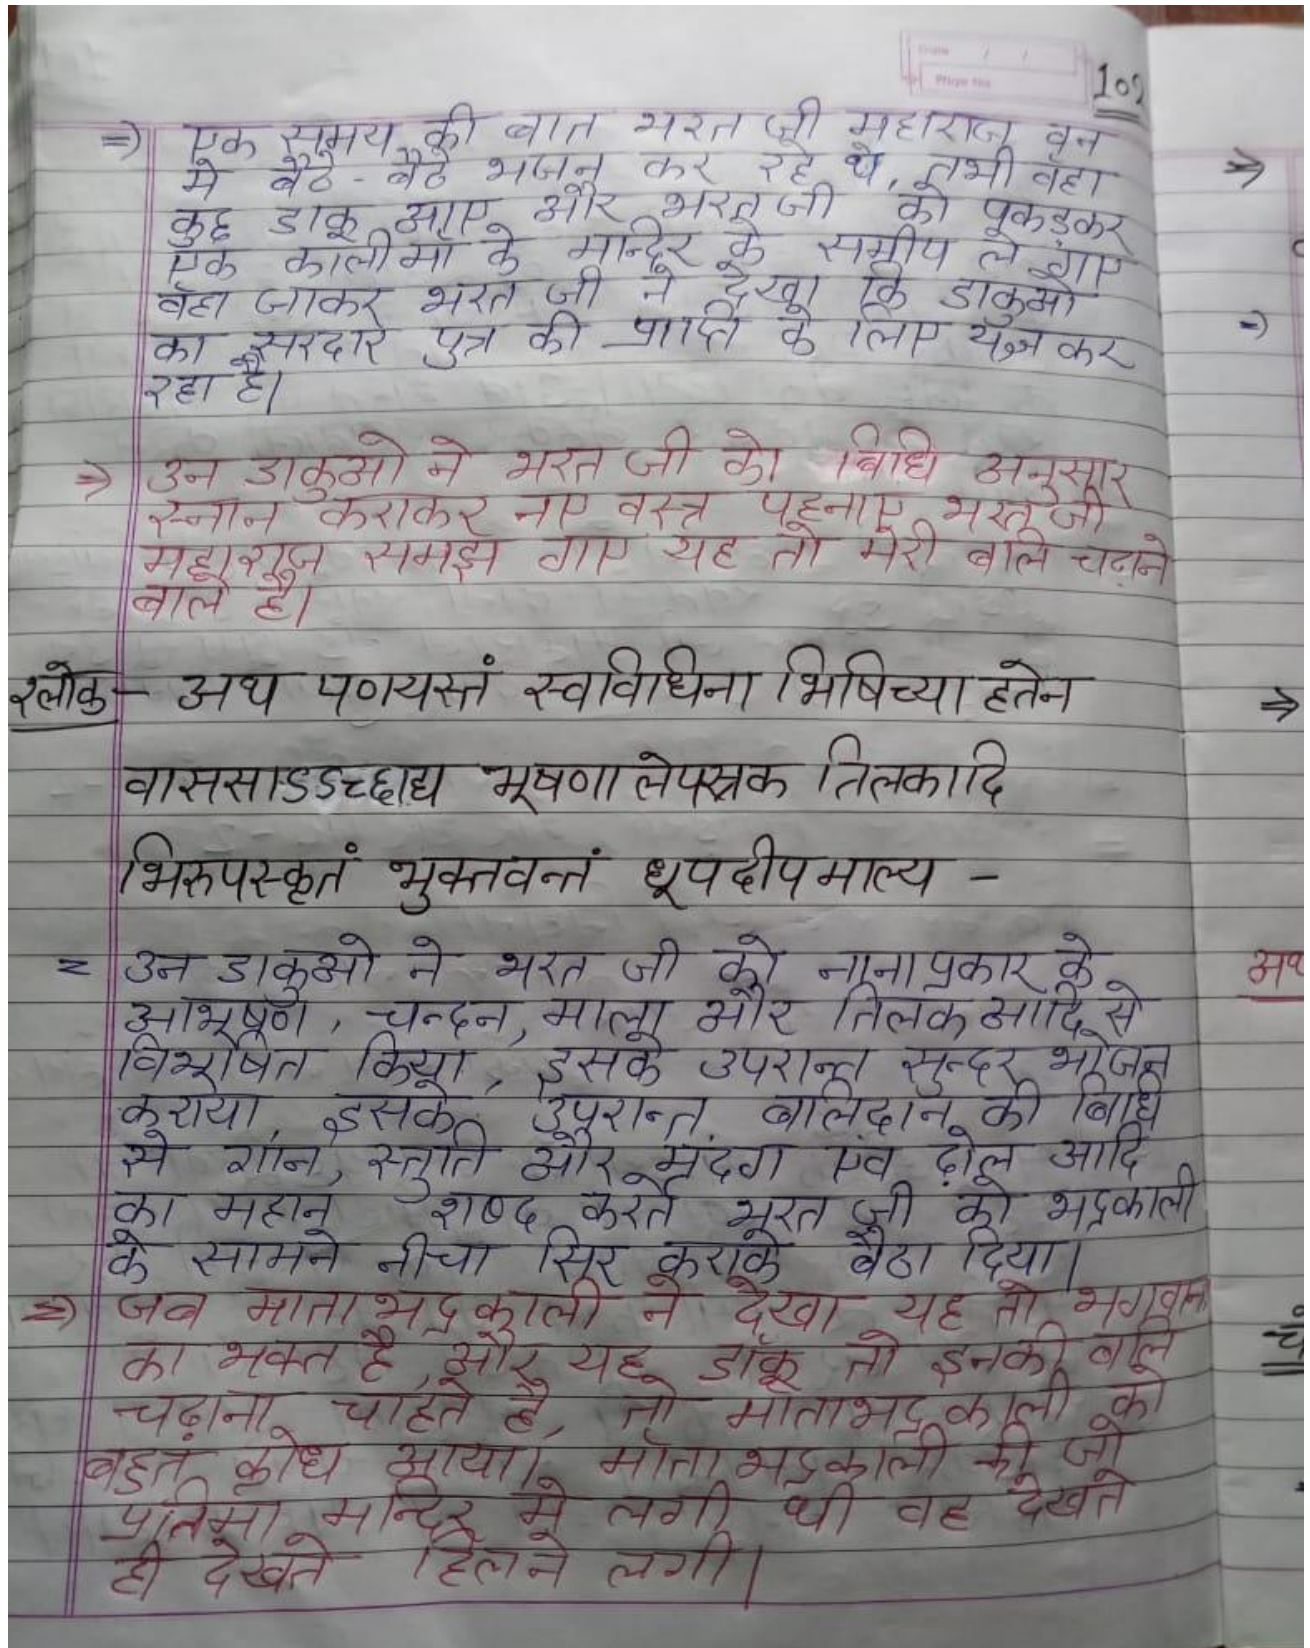 Date / /
Page No
102
=) एक समय की बात भरत जी महाराज वन
मे बैठे - बैठे भजन कर रहे थे, तभी वहा
कुछ डाकू आए और भरत जी को पकड़कर
एक काली माँ के मन्दिर के समीप ले गाए
वहा जाकर भरत जी ने देखा कि डाकुओ
का सरदार पुत्र की प्राप्ति के लिए यज्ञ कर
रहा है।
⇒ उन डाकुओ ने भरत जी को बिधि अनुसार
स्नान कराकर नए वस्त्र पहनाए भरत जी
महाराज समझ गाए यह तो मेरी बलि चढ़ाने
बाले है।
श्लोक - अथ पणयस्तं स्वविधिना भिषिच्या हतेन
वाससाडडच्छाद्य भूषणा लेपस्रक तिलकादि
भिरुपस्कृतं भुक्तवन्तं धूपदीपमाल्य -
= उन डाकुओ ने भरत जी को नाना प्रकार के
आभूषण, चन्दन, माला और तिलक आदि से
विभूषित किया, इसके उपरान्त सुन्दर भोजन
कराया, इसके उपरान्त बलिदान की बिधि
से गान, स्तुति और मृदंग एवं ढ़ोल आदि
का महान शब्द करते भरत जी को भद्रकाली
के सामने नीचा सिर कराके बैठा दिया।
=) जब माता भद्रकाली ने देखा यह तो भगवान
का भक्त है, और यह डाँकू तो इनकी बलि
चढ़ाना चाहते है, तो माता भद्रकाली को
बहुत क्रोध आया। माँता भद्रकाली की जो
प्रतिमा मन्दिर मे लगी थी वह देखते
ही देखते हिलने लगी।
⇒
=)
⇒
अथ